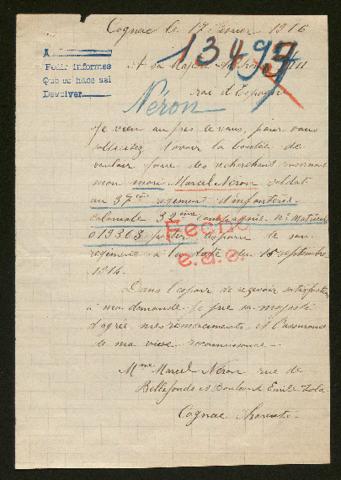 Cognac le 17 février 1916
13497
A
Pedir informes
Que se hace asi
Devolver
A sa Majesté Alphonse XIII
roi d'Espagne
Néron
Je viens auprès de vous, pour vous
solliciter d'avoir la bonté de
vouloir faire des recherches
mon mari Marcel Néron soldat
au 37ème régiment d'infanterie
coloniale 32me compagnie No Matricule
019363 disparu de son
régiment à la date du septembre
1914.
Fecho
e.a.e.
Dans l'espoir de recevoir satisfaction
à ma demande. Je prie sa majesté
d'agréer mes remerciements et l'assurance
de ma vive reconnaissance.
Mme Marcel Néron rue de
Bellefonds et Boulevard Emile Zola
Cognac Charente